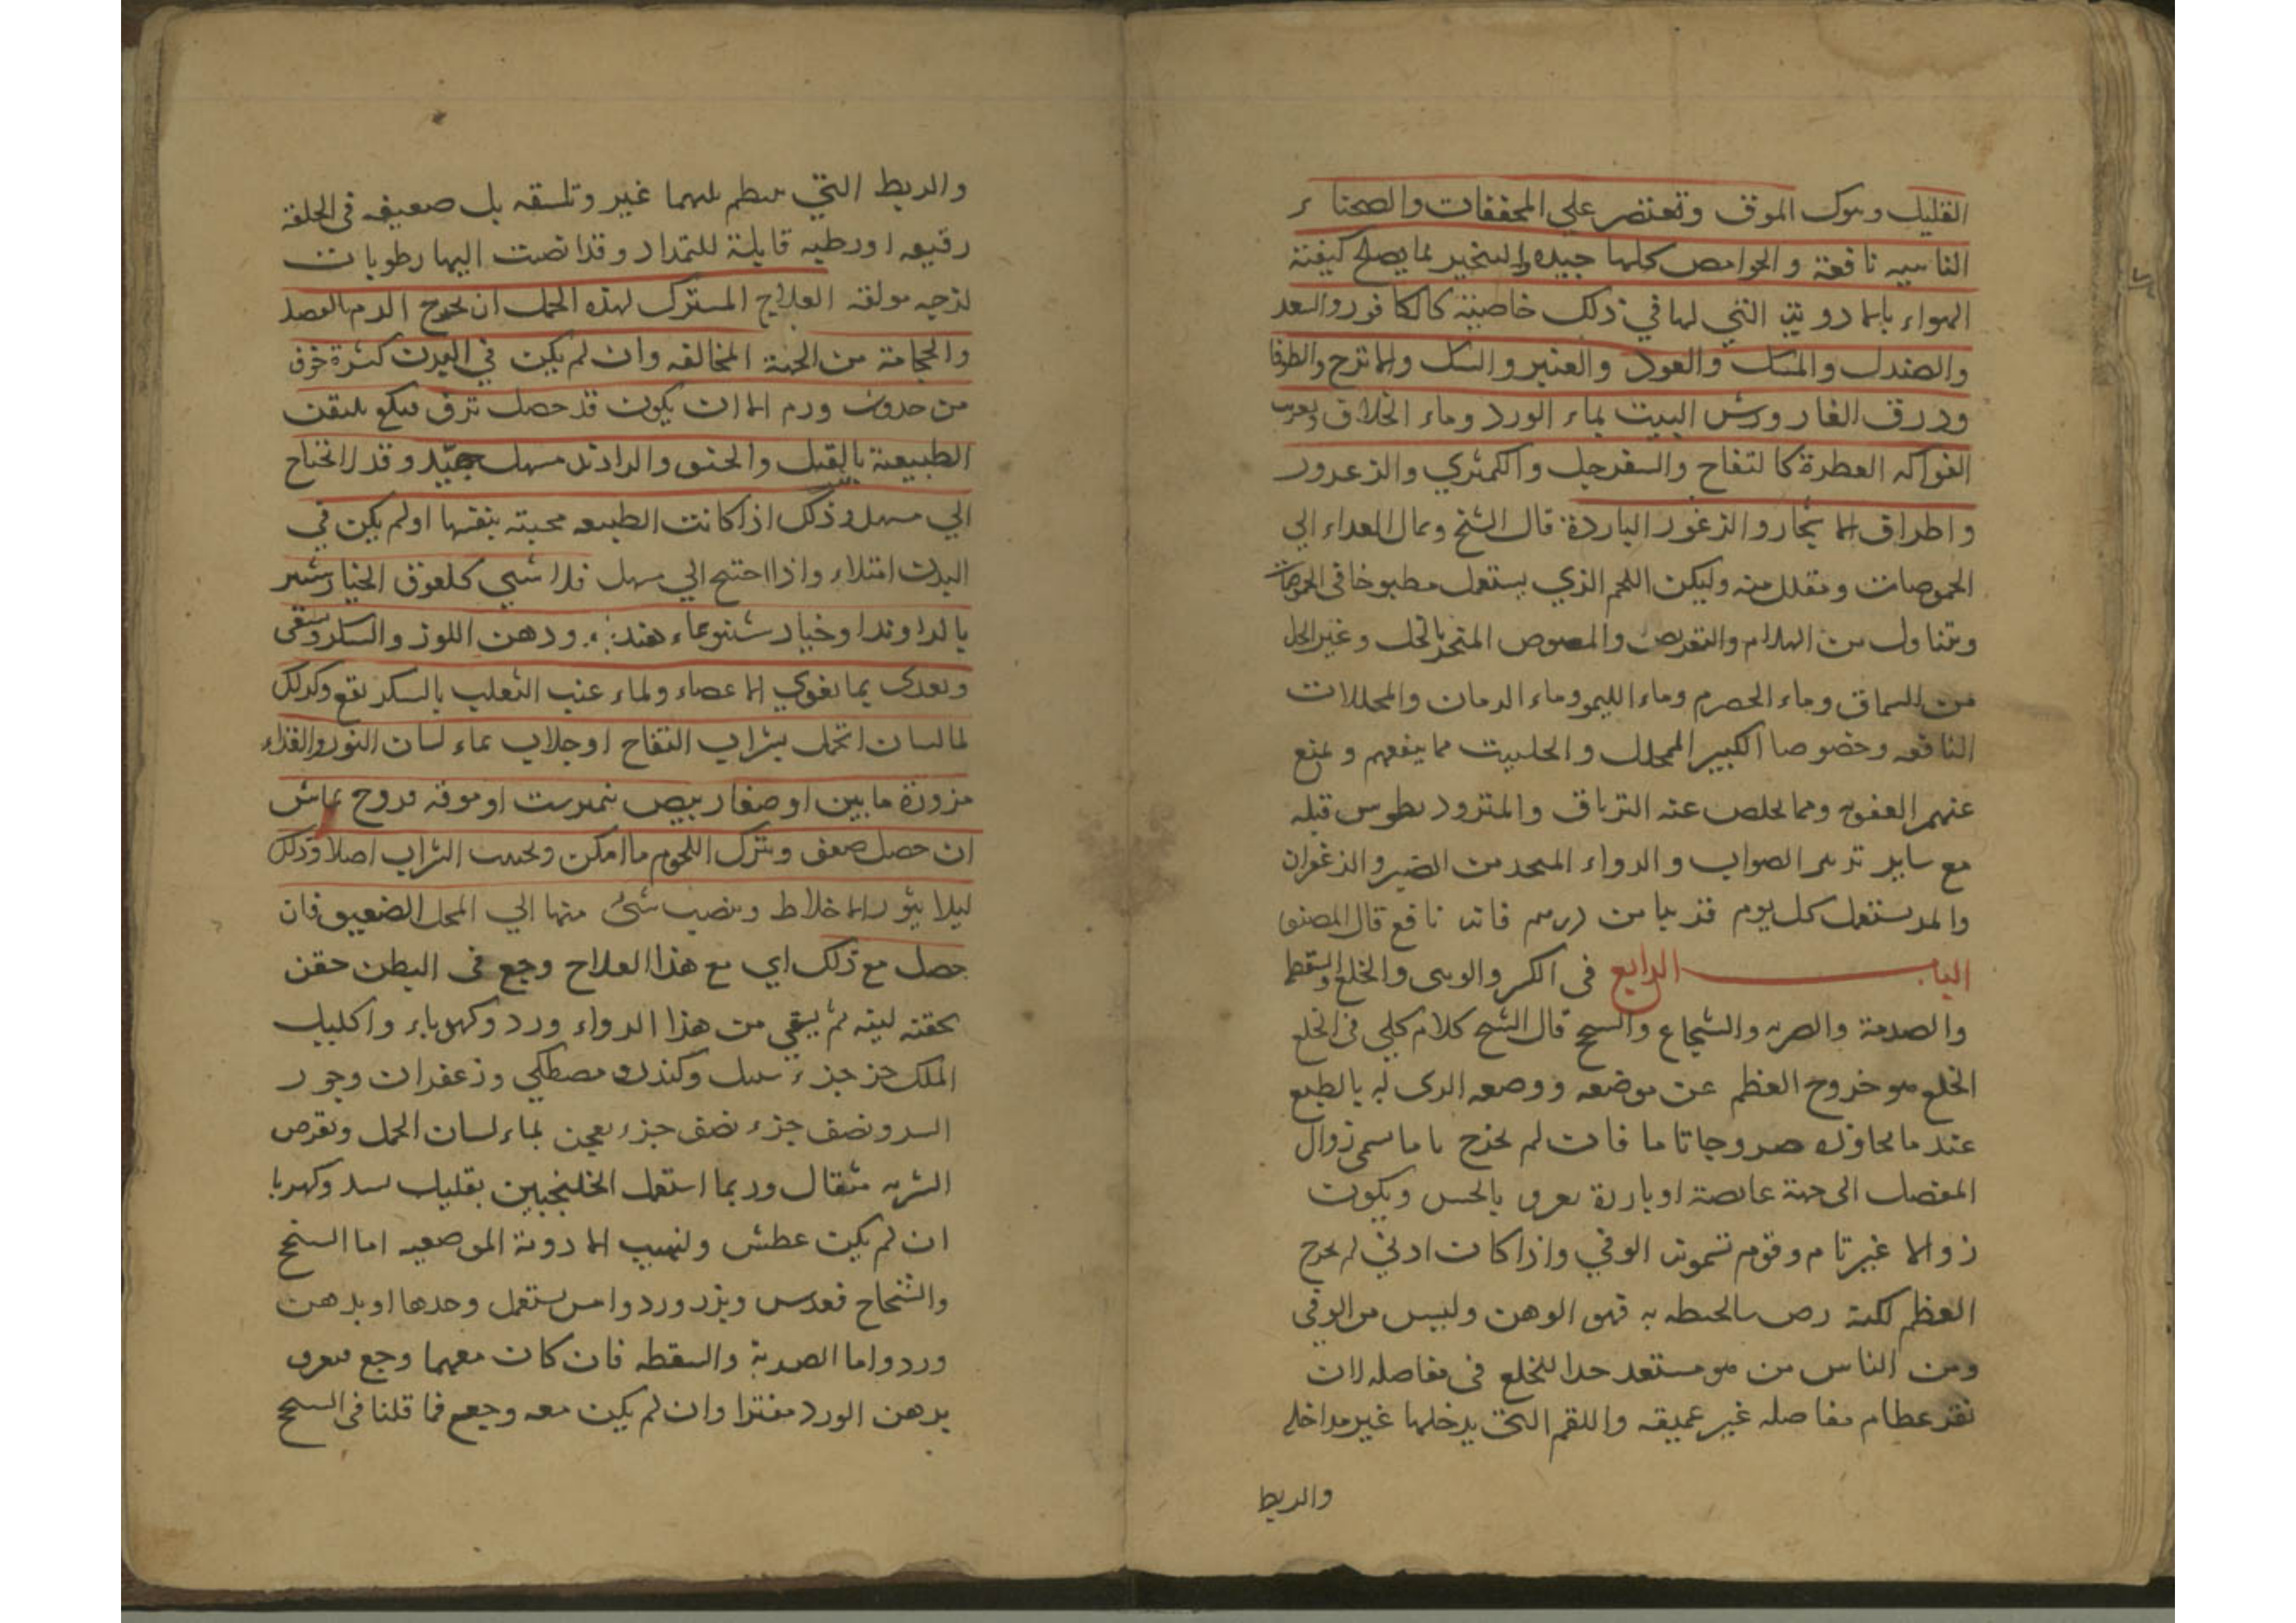 القليل وترك المرق وتقتصر علي المجففات والصحناء
الناسيه نافعة والحوامض كلها جيده والتبخير بما يصلح كيفية
الهواء بالادوية التي لها في ذلك خاصية كالكافور والسعد
والصندل والمسك والعود والعنبر والسك والاترج والطرفا
وورق الغار ورش البيت بماء الورد وماء الخلاف
الفواكه العطرة كالتفاح والسفرجل والكمثري والزعرور
واطراق الاشجار والزعرور الباردة قال الشيخ ويمال الغداء الي
الحموضات وتقلل منه وليكن اللحم الذي يستعمل مطبوخا في الحموضات
ويتناول من الهلام والقريص والمصوص المتخذ بالخل وغير الخل
من السماق وماء الحصرم وماء الليمو وماء الرمان والمخللات
النافعه وخصوصا الكبير المخلل والحلتيت مما ينفعهم ويمنع
عنهم العفونه ومما يخلص عنه الترياق والمتزود يطوس قبله
مع ساير تدبير الصواب والدواء المتخذ من الصبر والزعفران
والمر يستعمل كل يوم قريبا من درهم فانه نافع قال المصنف
الباب الرابع في الكسر والوثي والخلع والسقطه
والصدمة والضربه والشجاع والسحج قال الشيخ كلام كلي في الخلع
الخلع هو خروج العظم عن موضعه ووضعه الذي له بالطبع
عندما يجاوزه خروجا تاما فان لم يخرج تاما سمي زوال
المفصل الي جهة غايصة او بارزة يعرف بالحس ويكون
زوالا غير تام وقوم تسمونه الوفي واذا كان ادني لم يخرج
العظم لكنه رض ما يحيط به فهو الوهن وليس من الوفي
ومن الناس من هو مستعد جدا للخلع في مفاصله لان
نقر عظام مفاصله غير عميقه واللقم التي يدخلها غير مداخله
والربط
والربط التي ينظم بينهما غير وثيقه بل ضعيفه في الخلقه
رقيقه او رطبه قابلة للتمداد وقد انصبت اليها رطوبات
لزجه مزلقه العلاج المشترك لهذه الجمل ان يخرج الدم بالفصد
والحجامة من الجهة المخالفه وان لم يكن في البدن كثرة خوف
من حدوث ورم الا ان يكون قد حصل نزف
الطبيعة بالفتل والحقن والراوند مسهل جيد وقد لا يحتاج
الي مسهل وذلك اذا كانت الطبيعه مجيبة بنفسها او لم يكن في
البدن امتلاء واذا احتيج الي مسهل فلا شي كلعوق الخيار شنبر
بالراوند او خيار شنبر بماء هندبا ودهن اللوز والسكر وسقي
ويغدي بما يقوي الاعضاء ولماء عنب الثعلب بالسكر نفع وكذلك
لما لسان الحمل بشراب التفاح او جلاب بماء لسان الثور والغذاء
مزورة ماس او صفار بيض نيمرشت او مرقه فروج بماش
ان حصل ضعف ويترك اللحوم ما امكن ويجتنب الشراب اصلا وذلك
ليلا يثور الاخلاط وينصب شئ منها الي المحل الضعيف فان
حصل مع ذلك اي مع هذا العلاج وجع في البطن حقن
بحقنه لينه ثم يسقي من هذا الدواء ورد وكهربا واكليل
الملك جزء جزء سنبل وكندر ومصطكي وزعفران وجوز
السرو نصف جزء نصف جزء يعجن بماء لسان الحمل ويقرص
الشربه مثقال وربما استعمل الخلنجبين بقليل لسد وكهربا
ان لم يكن عطش ولنهيب الادوية الموضعيه اما السحج
والشجاج فعدس وبزر ورد واس يستعمل وحدها او بدهن
ورد واما الضربة والسقطه فان كان معهما وجع فيعرق
بدهن الورد مفترا وان لم يكن معه وجع فما قلنا في السحج